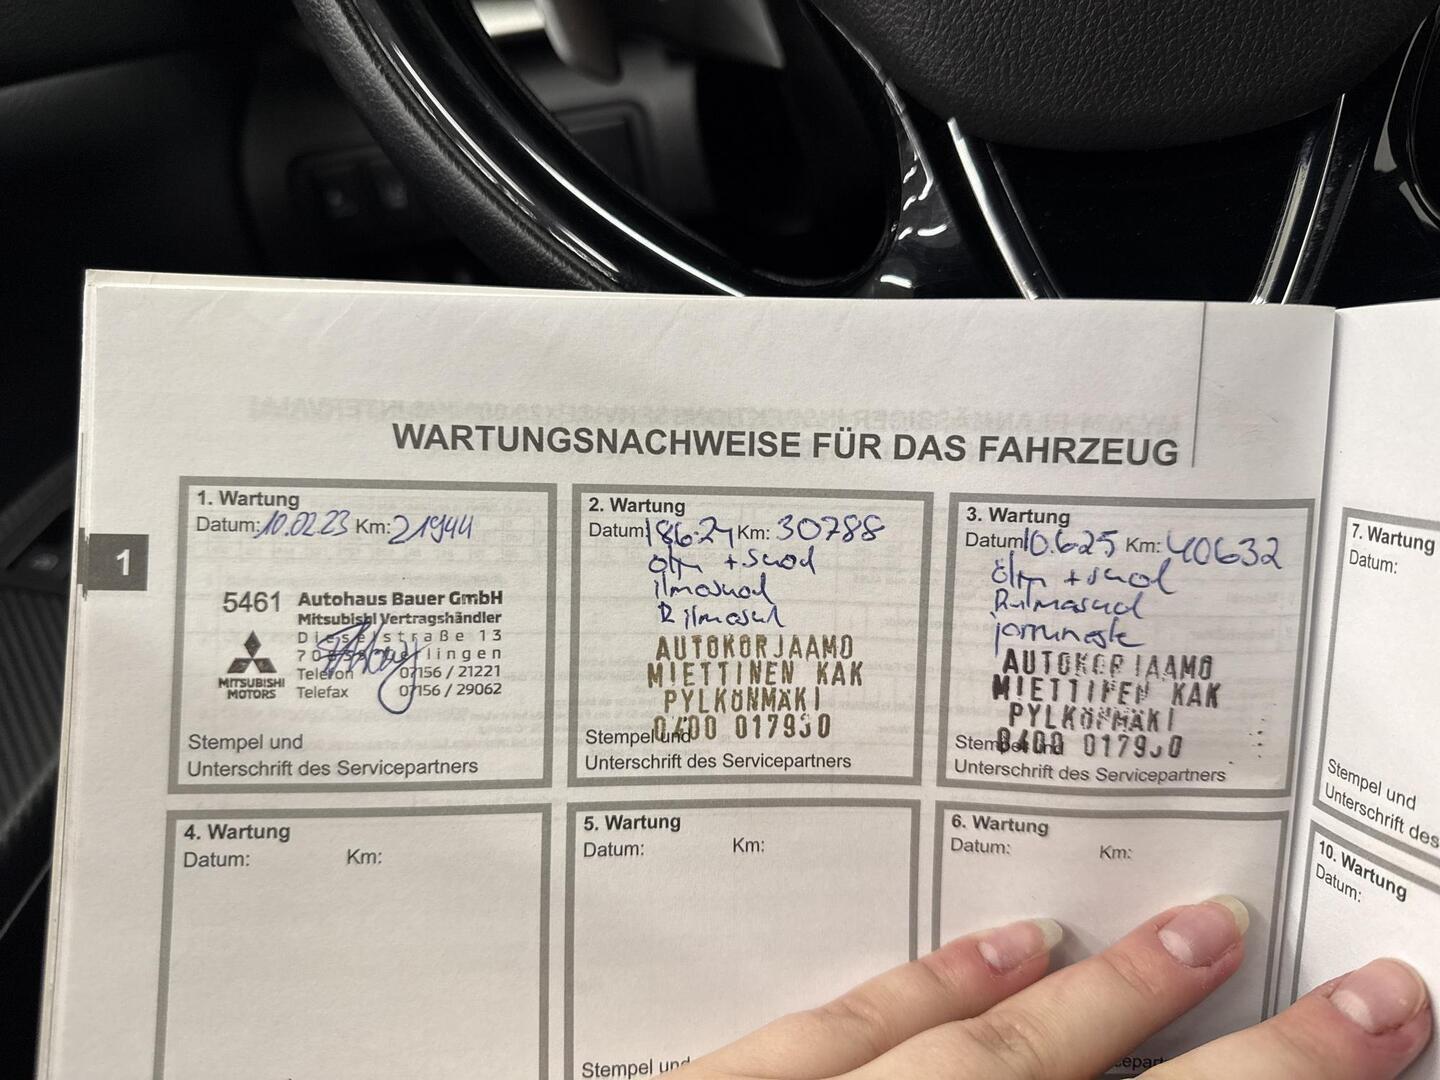 WARTUNGSNACHWEISE FÜR DAS FAHRZEUG
1
1. Wartung
Datum: 10.02.23 Km: 21944
5461 Autohaus Bauer GmbH
Mitsubishi Vertragshändler
Dieselstraße 13
lingen
MITSUBISHI MOTORS
Telefon 07156 / 21221
Telefax 07156 / 29062
Stempel und
Unterschrift des Servicepartners
2. Wartung
Datum: 18.6.24 Km: 30788
öljy + suod
ilmasuod
R ilmasu
AUTOKORJAAMO
MIETTINEN KAK
PYLKÖNMÄKI
0400 017930
Stempel und
Unterschrift des Servicepartners
3. Wartung
Datum 10.6.25 Km: 40632
öljy + suod
jarruneste
AUTOKORJAAMO
MIETTINEN KAK
PYLKÖNMÄKI
0400 017930
Stempel und
Unterschrift des Servicepartners
4. Wartung
Datum: Km:
5. Wartung
Datum: Km:
Stempel und
6. Wartung
Datum: Km:
7. Wartung
Datum:
Stempel und
Unterschrift des
10. Wartung
Datum: